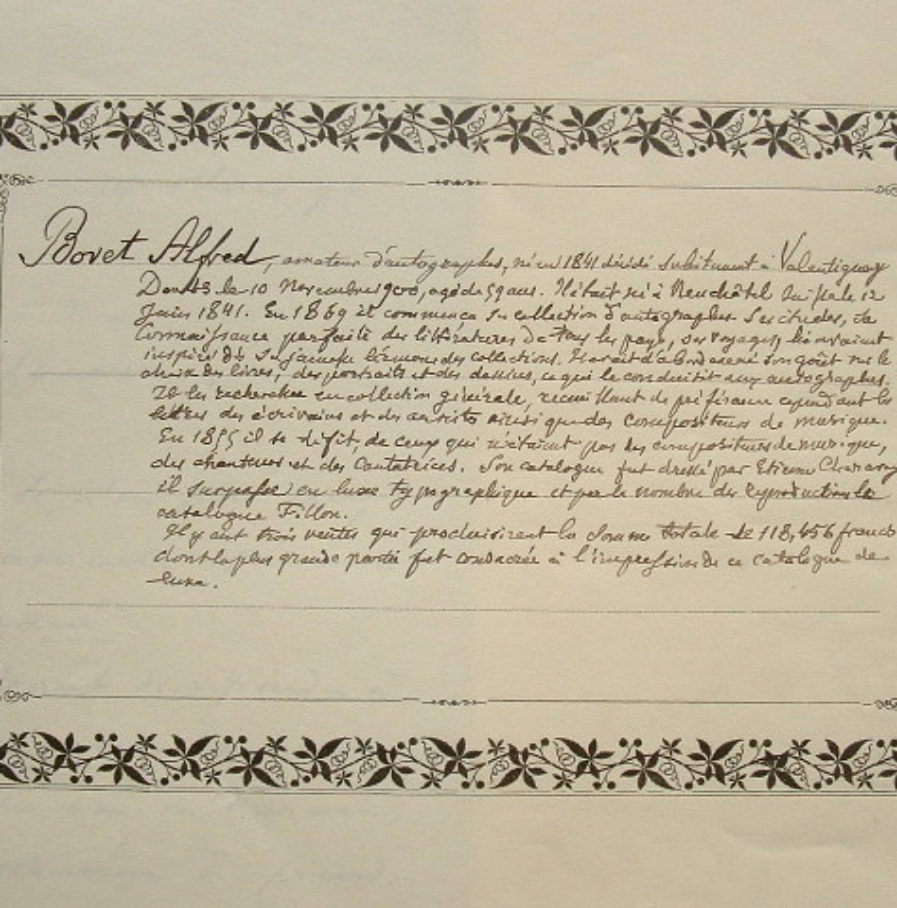 Bovet Alfred, amateur d'autographes, né en 1841 décédé subitement à Valentigney
Doubs le 10 Novembre 1900, agé de 59 ans. Il était né à Neuchâtel Suisse le 12
Juin 1841. En 1869 il commença sa collection d'autographes Ses études, sa
Connaissance parfaite des littératures de tous les pays, ses voyages, lui avaient
inspiré dès sa jeunesse l'amour des collections. Il avait d'abord exercé son goût sur le
choix des livres, des portraits et des dessins, ce qui le conduisit aux autographes.
Il les rechercha en collection générale, recueillant de préférence cependant les
lettres des écrivains et des artistes ainsi que des compositeurs de musique.
En 1885 il se défit, de ceux qui n'étaient pas des compositeurs de musique,
des chanteurs et des Cantatrices. Son catalogue fut dressé par Etienne Charavay
il surpasse en luxe typographique et par le nombre des reproductions le
catalogue Fillon.
Il y eut trois ventes qui produisirent la somme totale de 118,456 francs
dont la plus grande partie fut consacrée à l'impression de ce catalogue de
luxe.